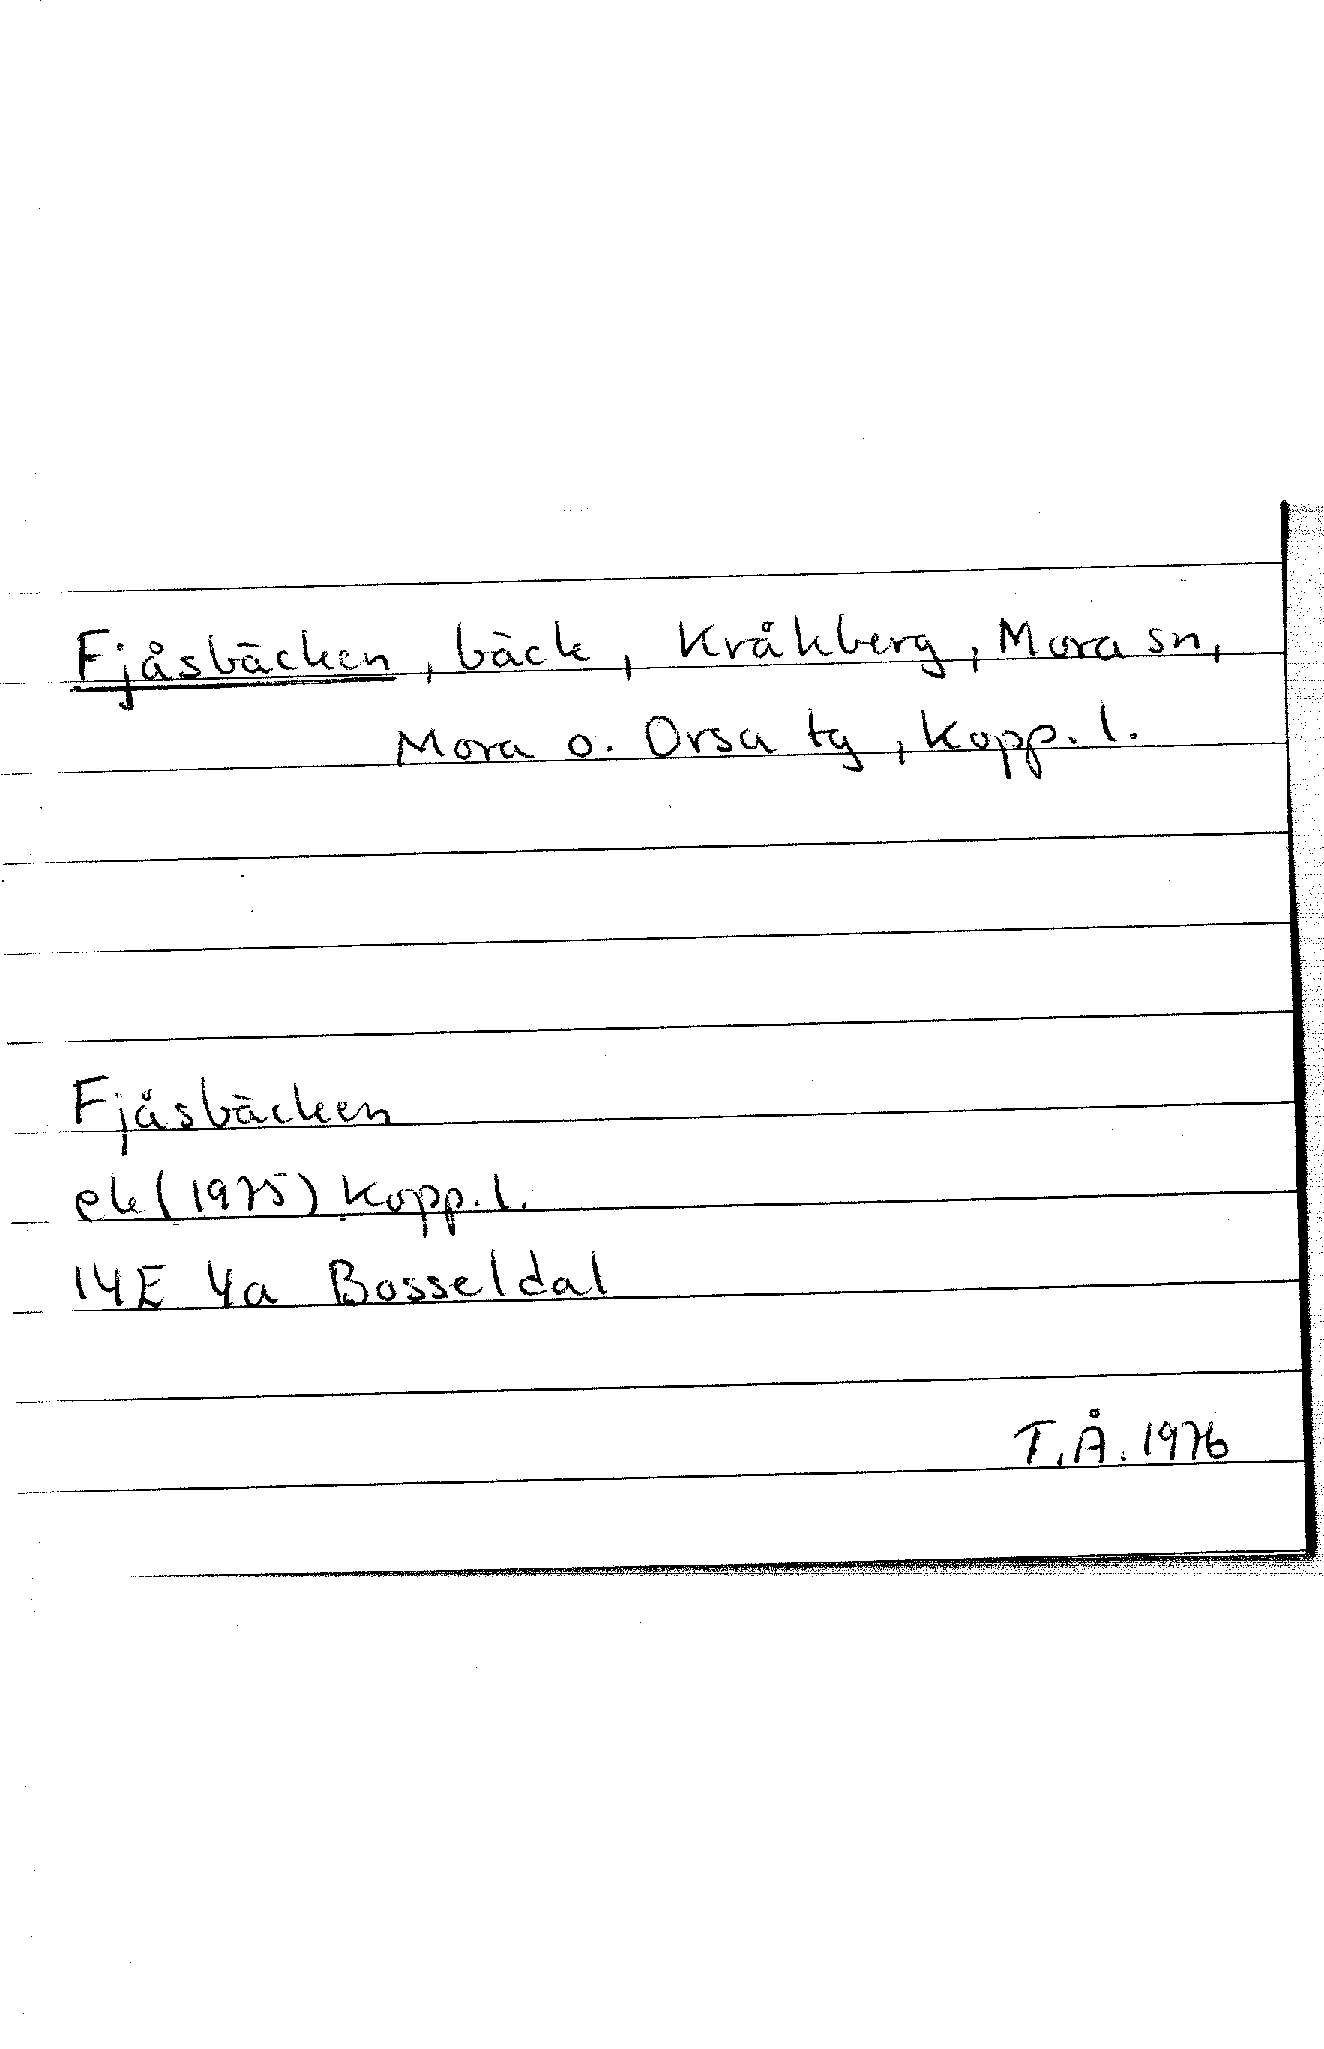 Fjåsbäcken, bäck, Kråkberg, Mora sn,
Mora o. Orsa tg, Kopp. l.
Fjåsbäcken
ek (1975) Kopp. l.
14E 4a Bosseldal
T.Å. 1976